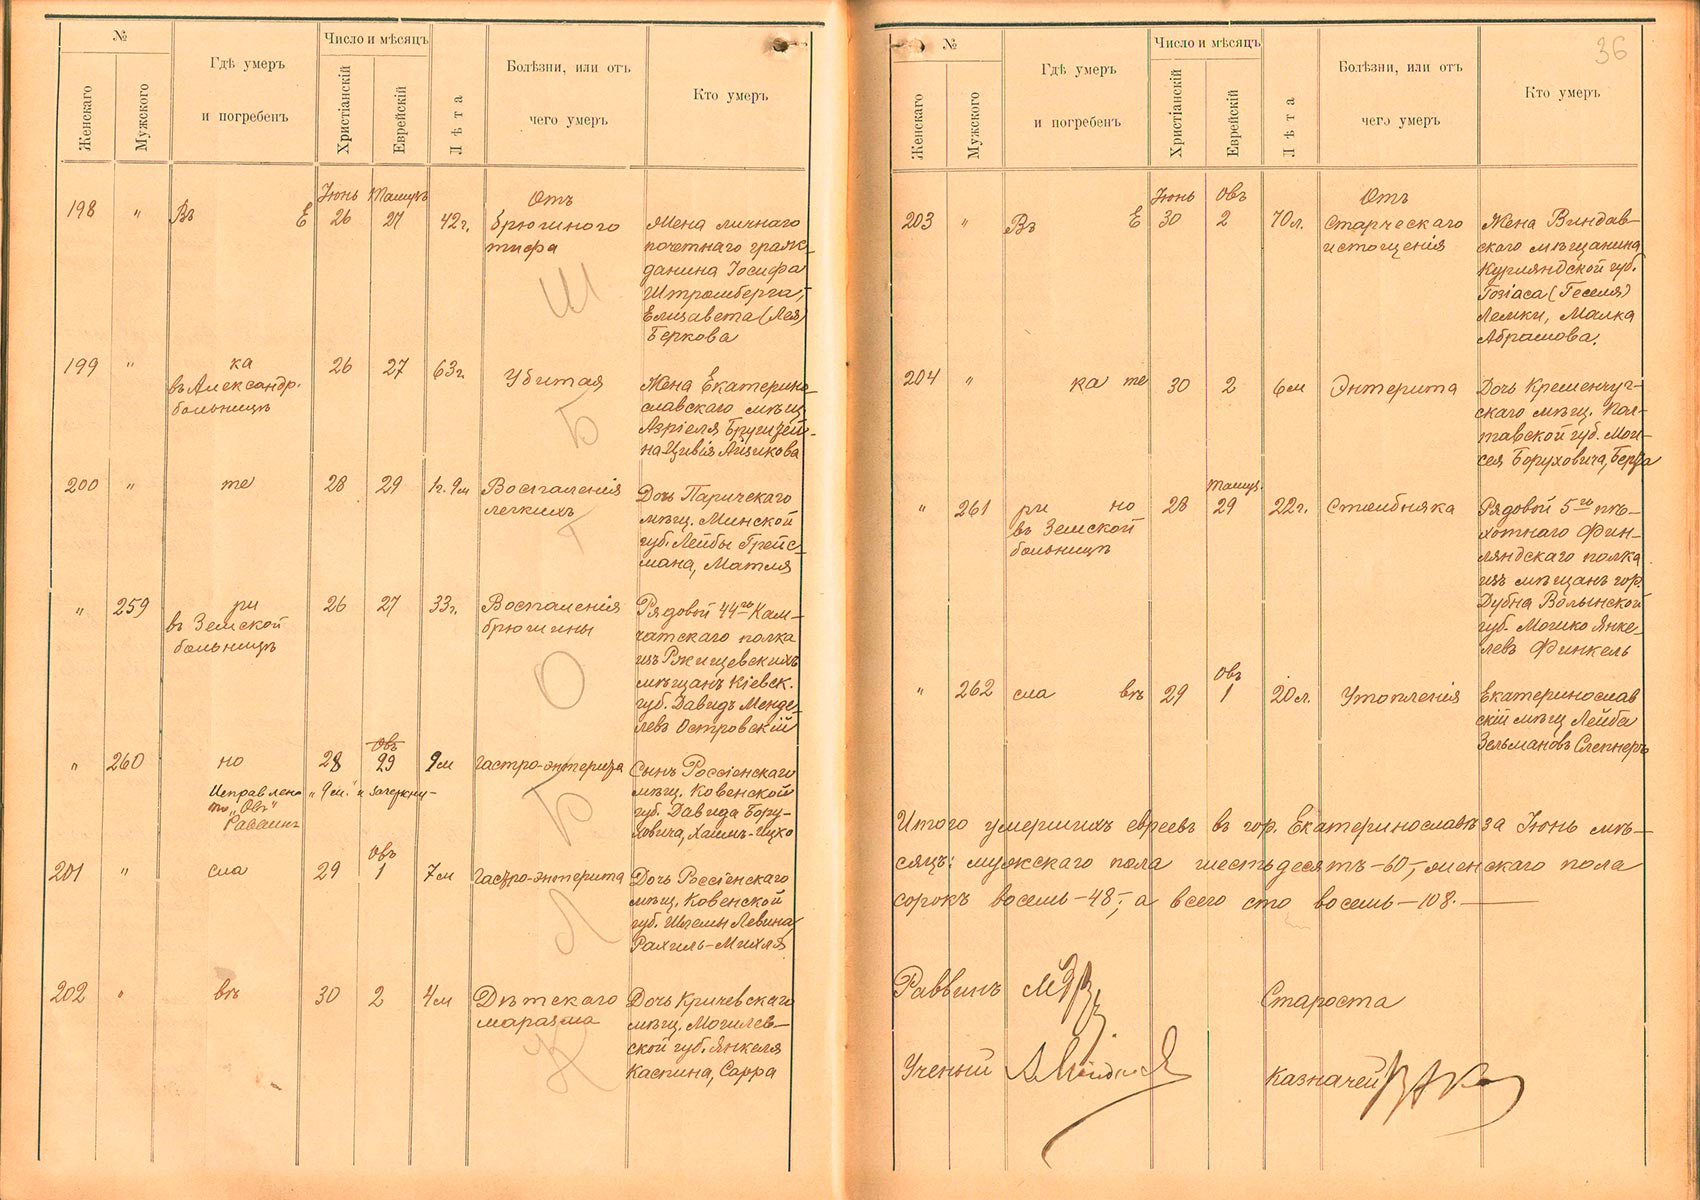 №
Число и мѣсяцъ
Женскаго
Мужского
Гдѣ умеръ
и погребенъ
Христіанскій
Еврейскій
Лѣта
Болѣзни, или отъ
чего умеръ
Кто умеръ
Іюнь Тамузъ Отъ
198 " Въ Е 26 27 42г. брюшного Жена личнаго
тифа почетнаго граж-
данина Іосифа
Штромберга,
Елизавета (Лея)
Беркова
199 " ка 26 27 63г. Убитая Жена Екатерино-
въ Александр. славскаго мѣщ.
больницѣ Азріеля
на Цивія Айзикова
200 " те 28 29 1г. 9м Воспаленія Дочь Паричскаго
легкихъ мѣщ. Минской
губ. Лейбы Грейс-
мана, Матля
" 259 ри 26 27 33г. Воспаленія Рядовой 44го Кам-
въ Земской брюшины чатскаго полка
больницѣ изъ Ржищевскихъ
мѣщанъ Кіевск.
губ. Давидъ Менде-
левъ Островскій
Овъ
" 260 но 28 29 9м Гастро-энтерита Сынъ Россіенскаго
Исправлено „9м." и зачеркну- мѣщ. Ковенской
то „Овъ" губ. Давида Бору-
Раввинъ ховича, Хаимъ-Ицхо
Овъ
201 " сла 29 1 7м Гастро-энтерита Дочь Россіенскаго
мѣщ. Ковенской
губ. Шлемы Левина,
Рахиль-Михля
202 " вѣ 30 2 4м Дѣтскаго Дочь Кричевскаго
маразма мѣщ. Могилев-
ской губ. Янкеля
Каспина, Сарра
Ш
Б
Т
О
Б
Л
К
36
№
Число и мѣсяцъ
Женскаго
Мужского
Гдѣ умеръ
и погребенъ
Христіанскій
Еврейскій
Лѣта
Болѣзни, или отъ
чего умеръ
Кто умеръ
Іюнь Овъ Отъ
203 " Въ Е 30 2 70л. Старческаго Жена Виндав-
истощенія скаго мѣщанина
Курляндской губ.
Гозіаса (Геселя)
Лемки, Малка
Абрамова.
204 " ка те 30 2 6м Энтерита Дочь Кременчуг-
скаго мѣщ. Пол-
тавской губ. Мои-
сея Боруховича, Берта
Тамуз.
" 261 ри но 28 29 22г. Столбняка Рядовой 5го пѣ-
въ Земской хотнаго Фин-
больницѣ ляндскаго полка
изъ мѣщанъ гор.
Дубна Волынской
губ. Мошко Янке-
левъ Финкель
Овъ
" 262 сла вѣ 29 1 20л. Утопленія Екатеринослав
скій мѣщ Лейба
Зельмановъ Слепнеръ
Итого умершихъ евреевъ въ гор. Екатеринославѣ за Іюнь мѣ-
сяцъ: мужскаго пола шестьдесятъ - 60 -, женскаго пола
сорокъ восемь - 48 -, а всего сто восемь - 108. -
Раввинъ
Староста
Ученый
Казначей